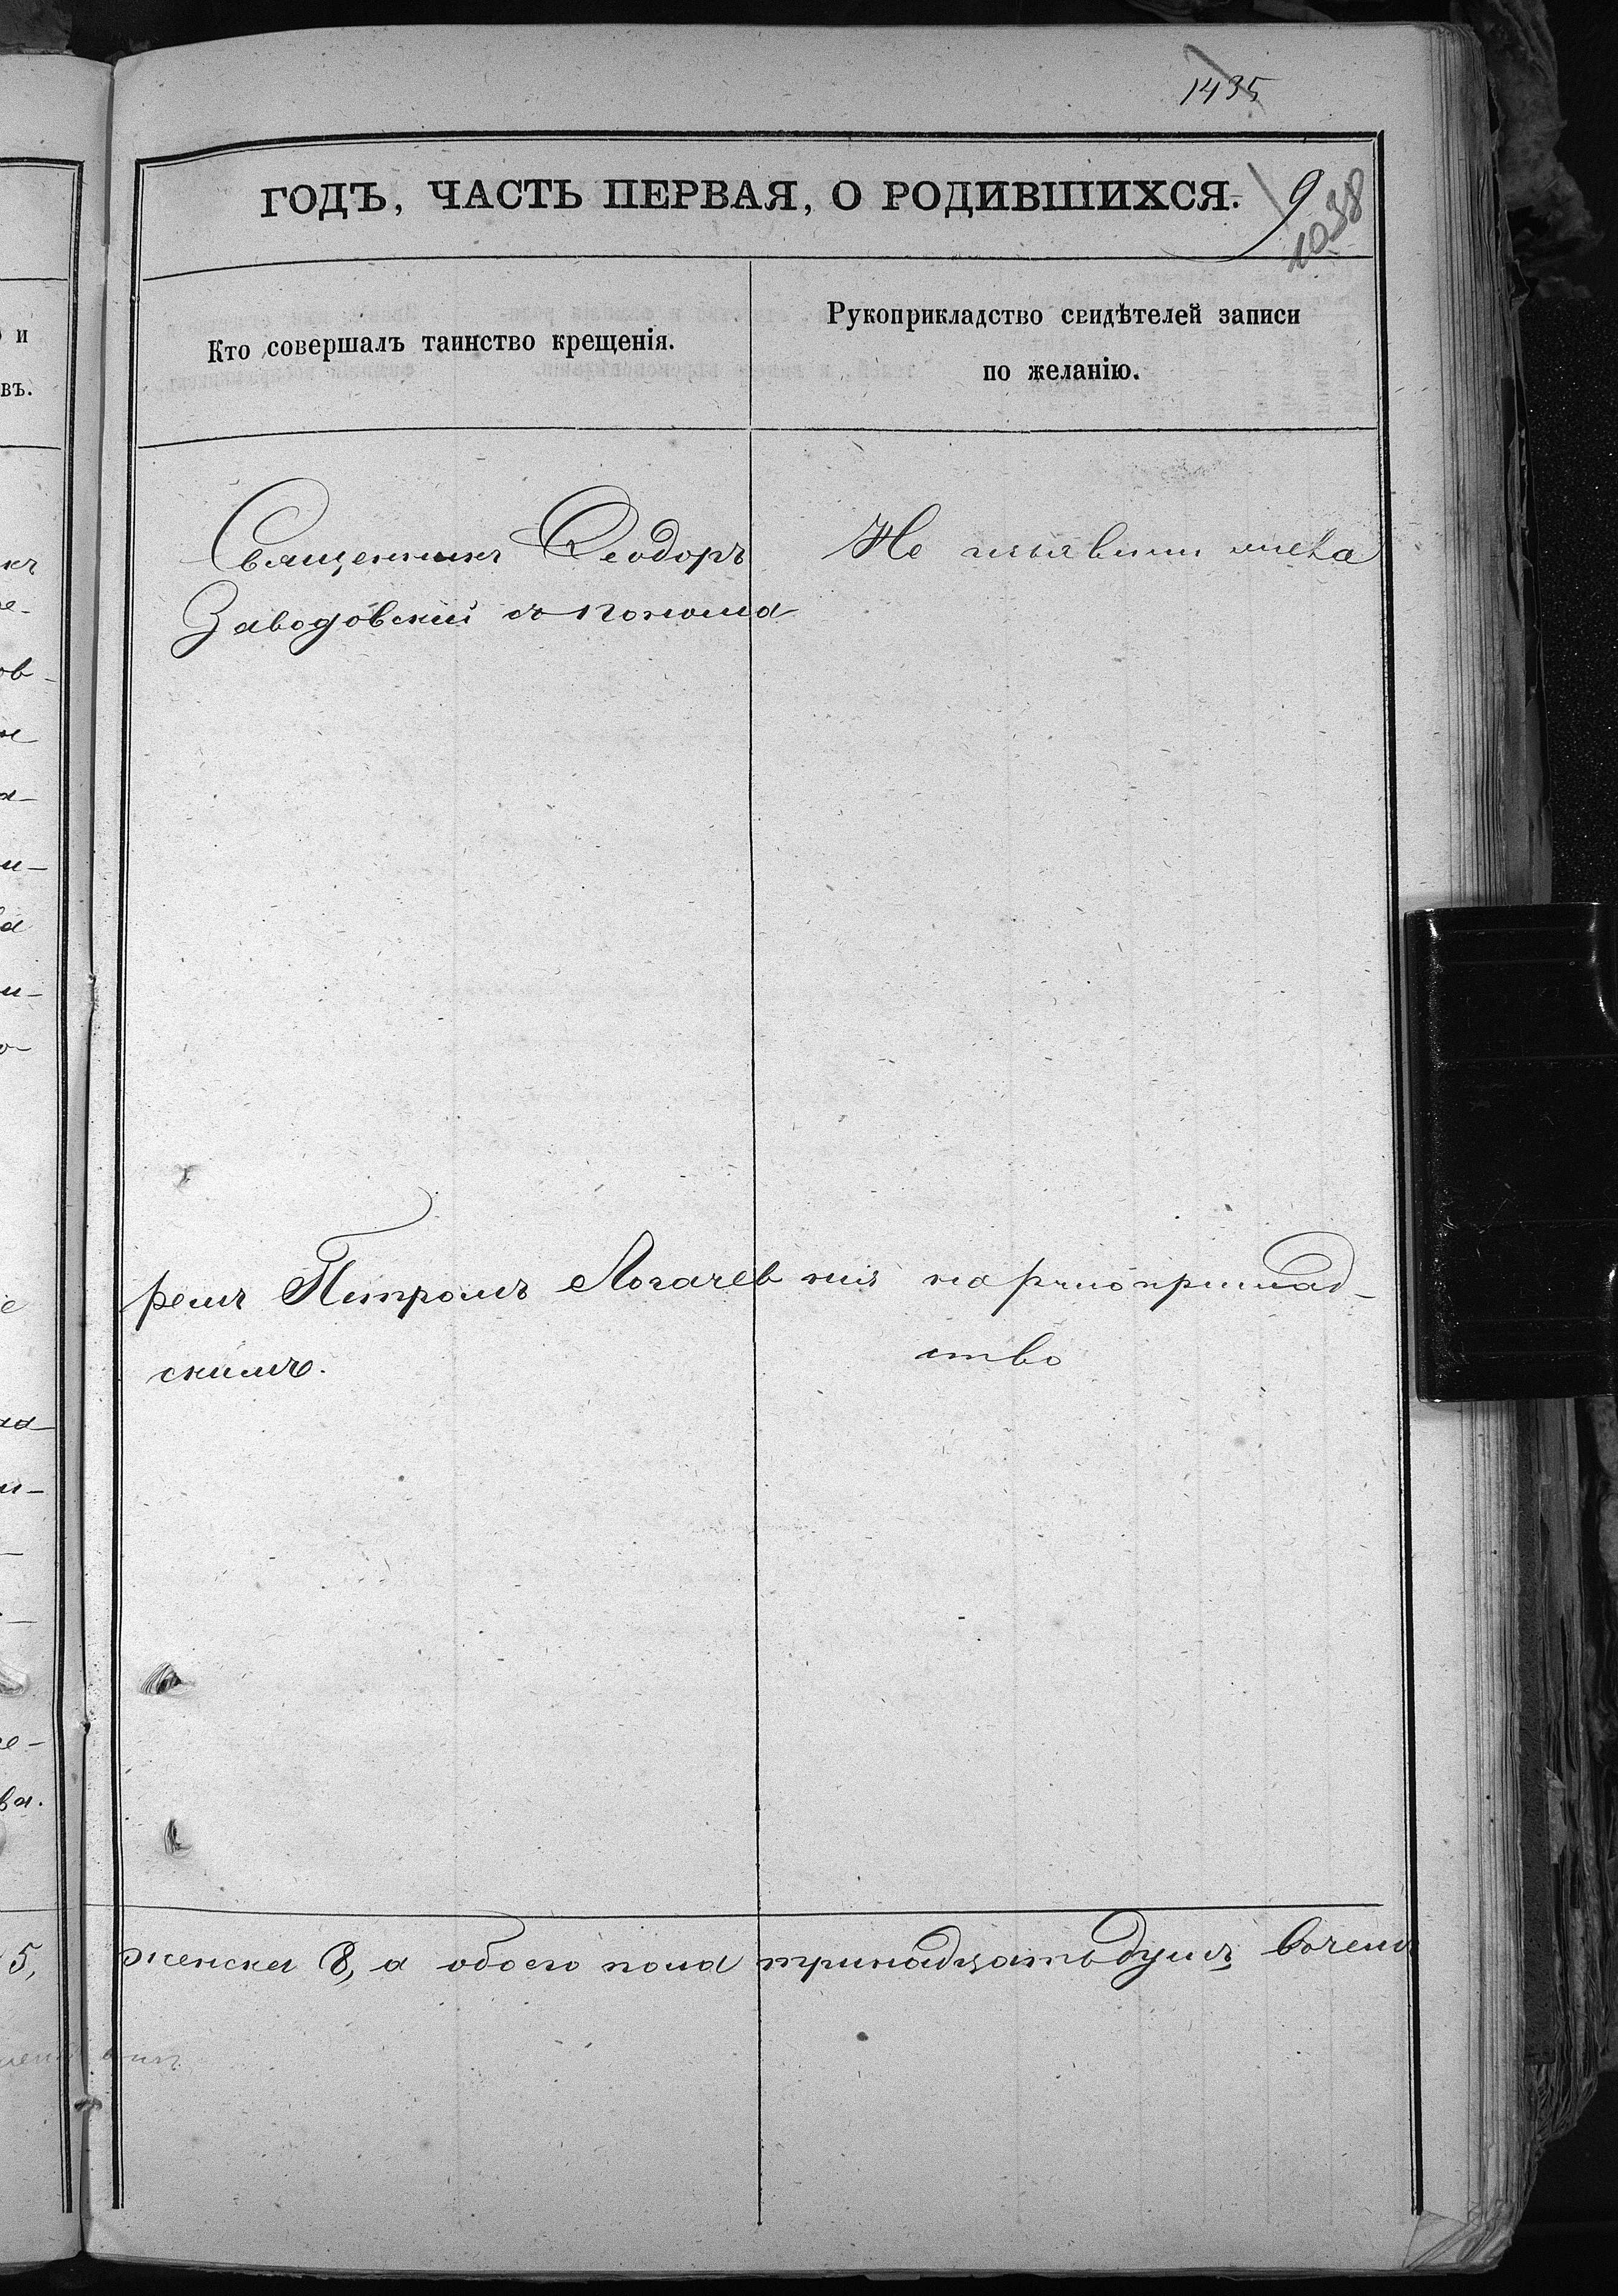 1435
ГОДЪ, ЧАСТЬ ПЕРВАЯ, О РОДИВШИХСЯ.
9
1038
Кто совершалъ таинство крещенія.
Рукоприкладство свидѣтелей записи
по желанію.
Священникъ Ѳеодоръ
Заводовскій съ понома
ремъ Петромъ Логачев
скимъ.
Не изъявили жела
нія на рукоприклад-
ство
5, женска 8, а обоего пола тринадцать душъ, въ чемъ